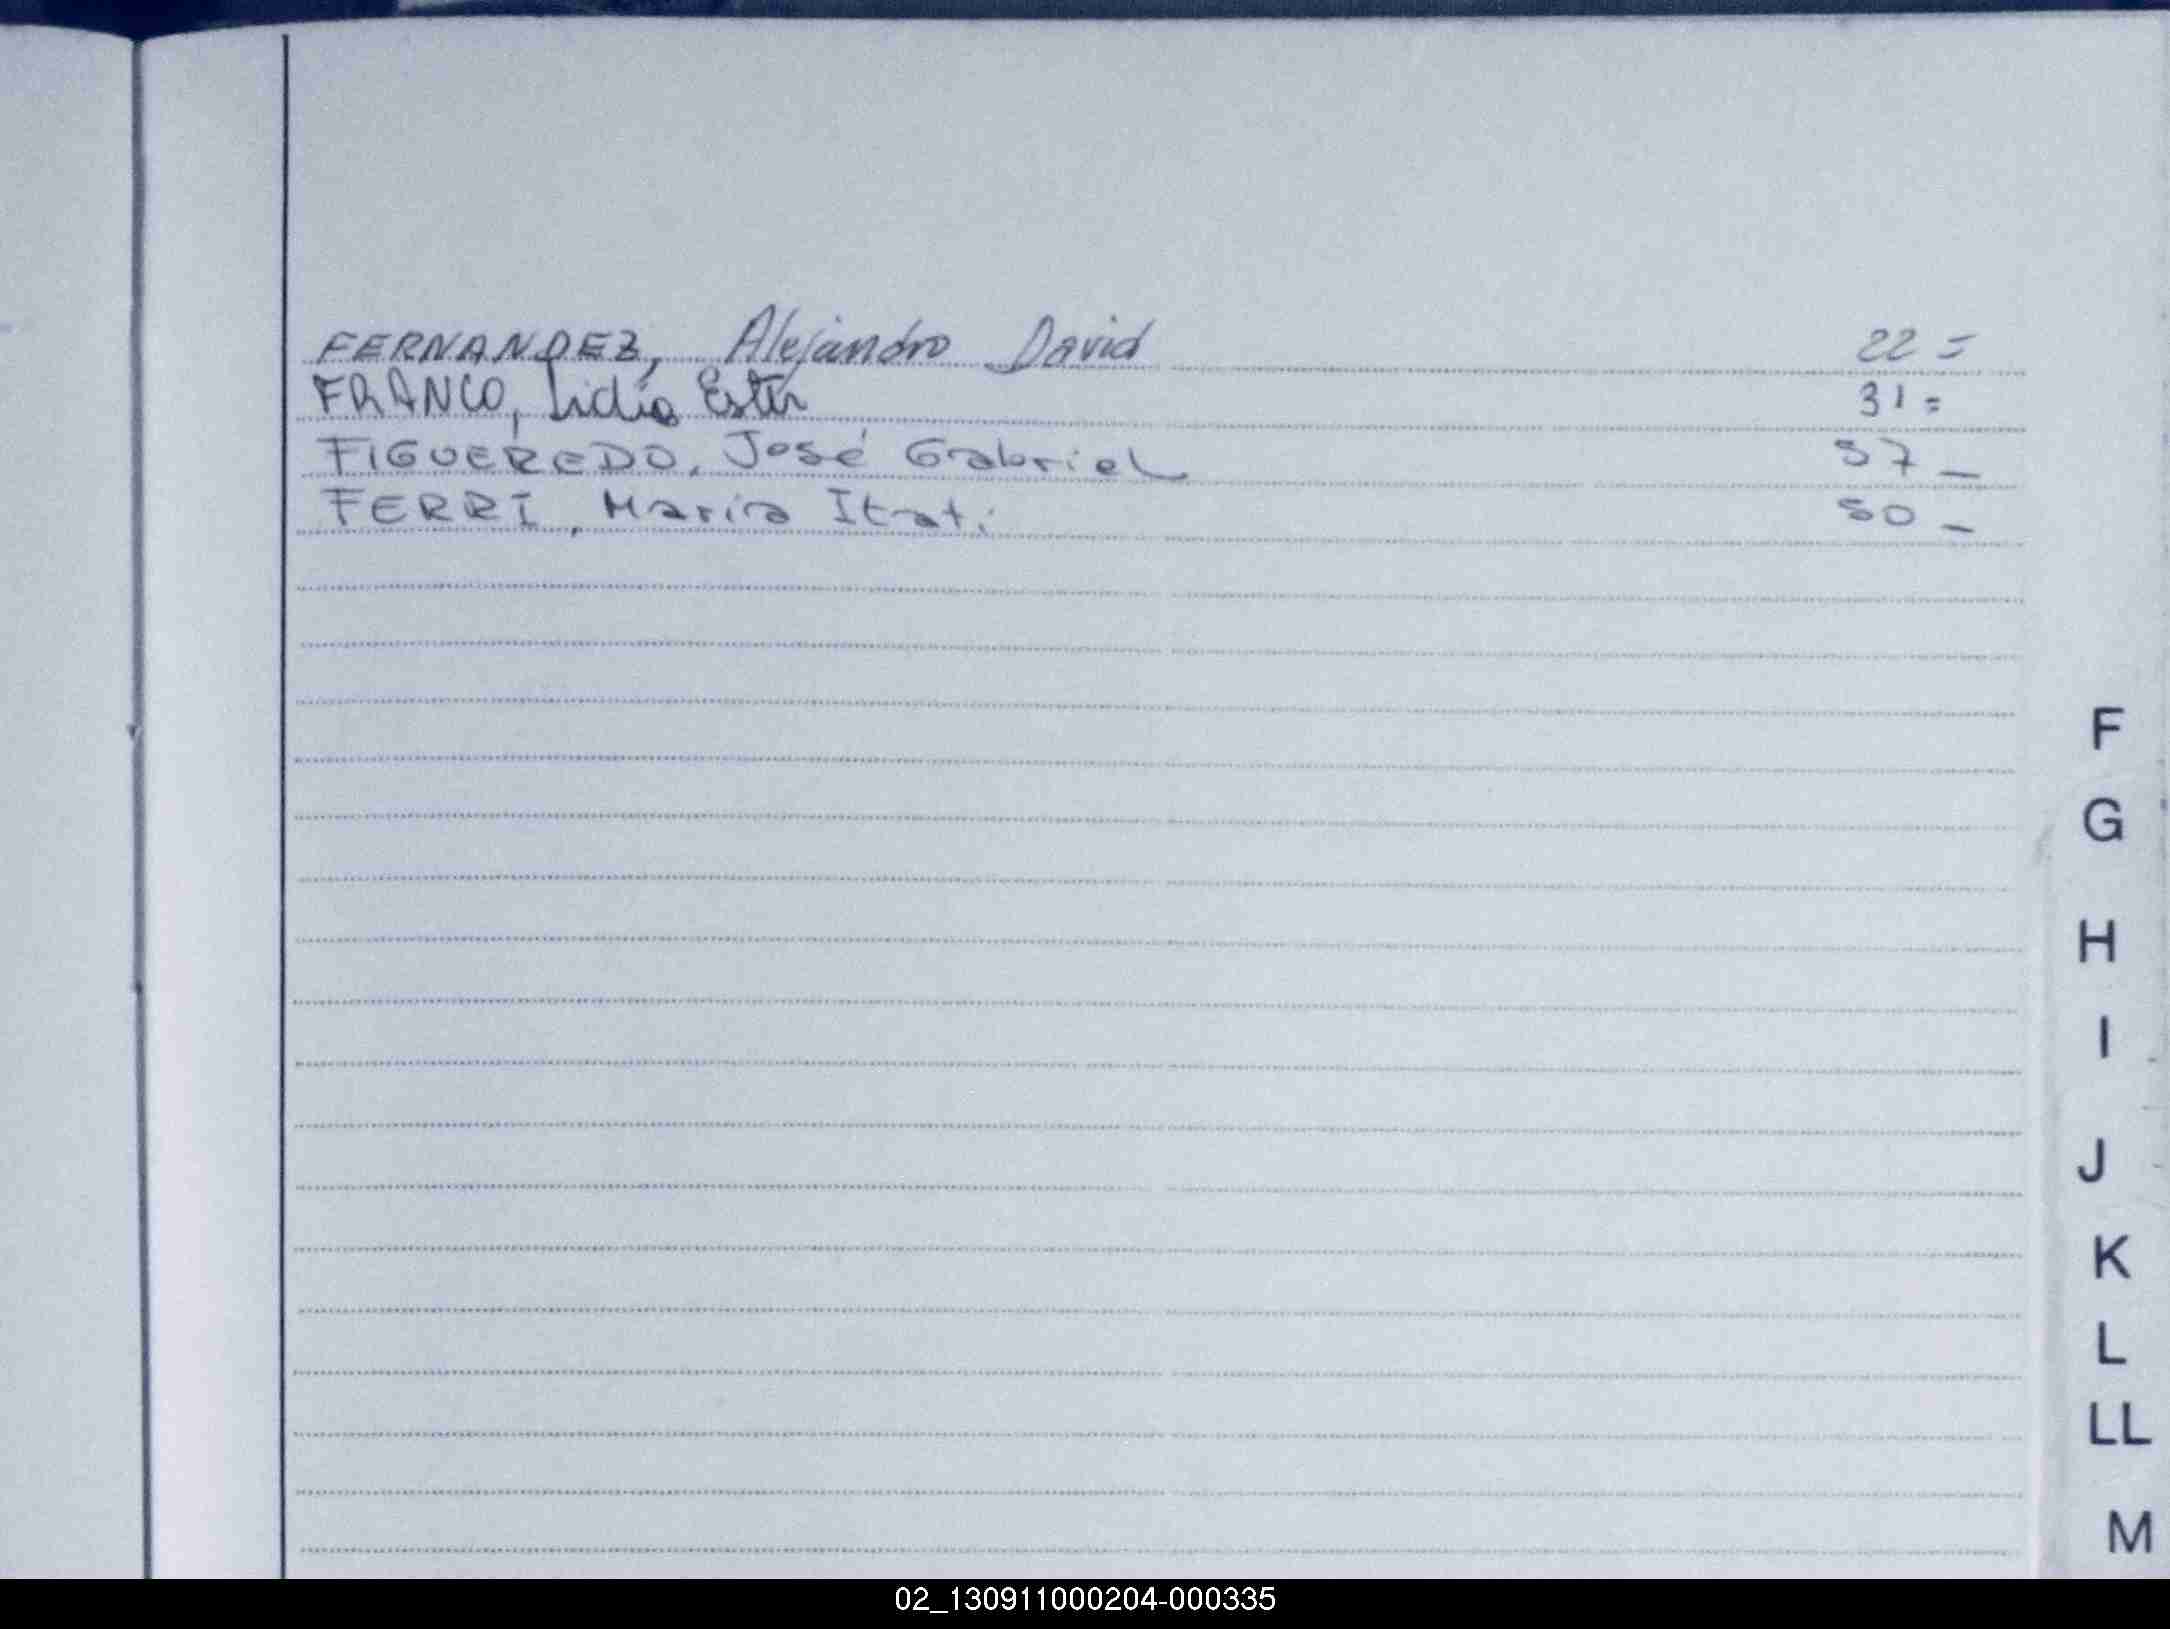 FERNANDEZ, Alejandro David 22=
FRANCO, Lidia Ester 31=
FIGUEREDO, José Gabriel 37_
FERRI, Maria Itati 50_
F
G
H
I
J
K
L
LL
M
02_130911000204-000335